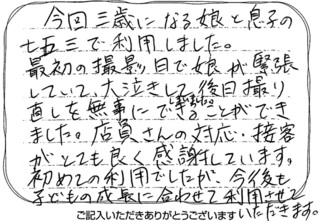 今回三歳になる娘と息子の
七五三で利用しました。
最初の撮影日で娘が緊張
していて、大泣きして後日撮り
直しを無事にできることができ
ました。店員さんの対応・接客
がとても良く感謝しています。
初めての利用でしたが、今後も
子どもの成長に合わせて利用させて
いただきます。
ご記入いただきありがとうございます